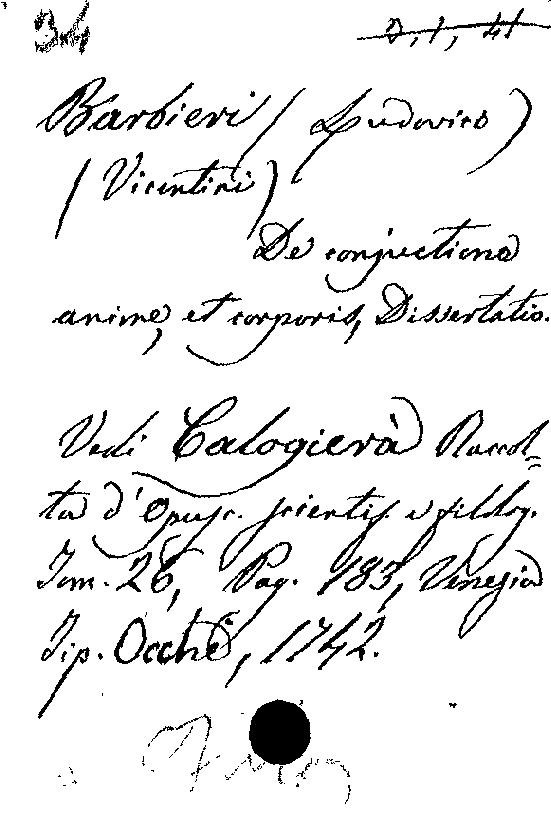 34 3,1,41
Barbieri (Ludovico)
(Vicentini)
De conjuctione
anime, et corporis, Dissertatio.
Vedi Calogierà Raccol=
ta d'Opusc. scientif. e filolog.
Tom. 26, Pag. 183, Venezia
Tip. Occhi, 1742.